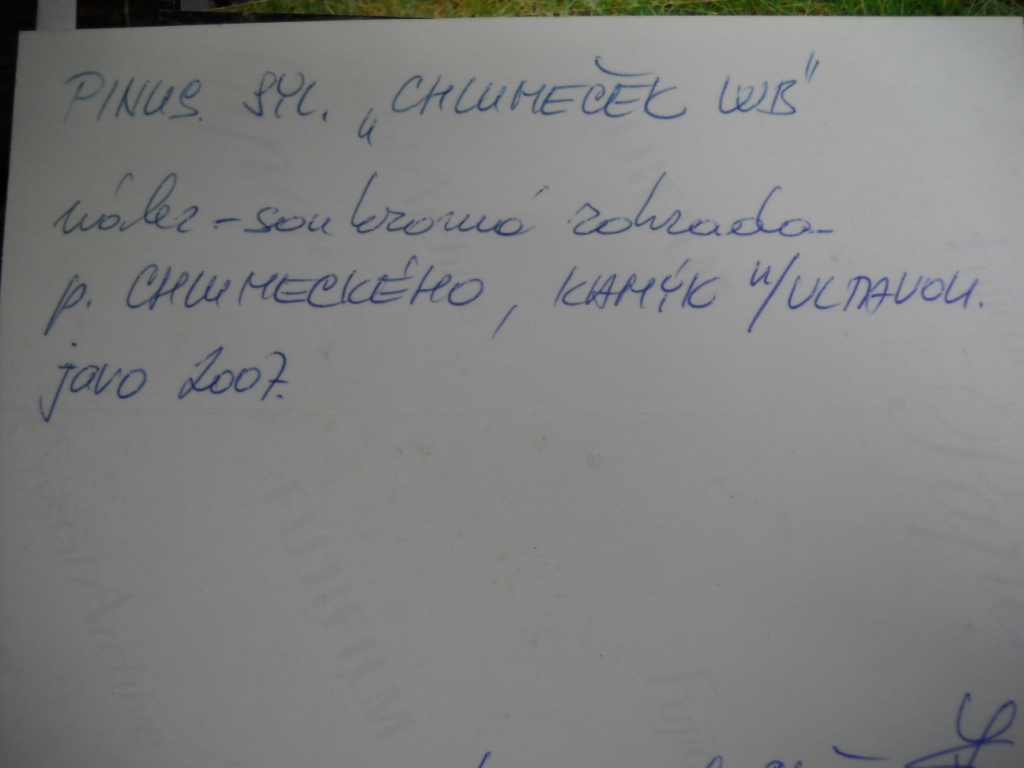 PINUS. SYL. „CHLUMEČEK WB"
nález - soukromá zahrada
p. CHLUMECKÉHO, KAMÝK n/VLTAVOU.
jaro 2007.
FUJIFILM
Digital Archive
Fuji